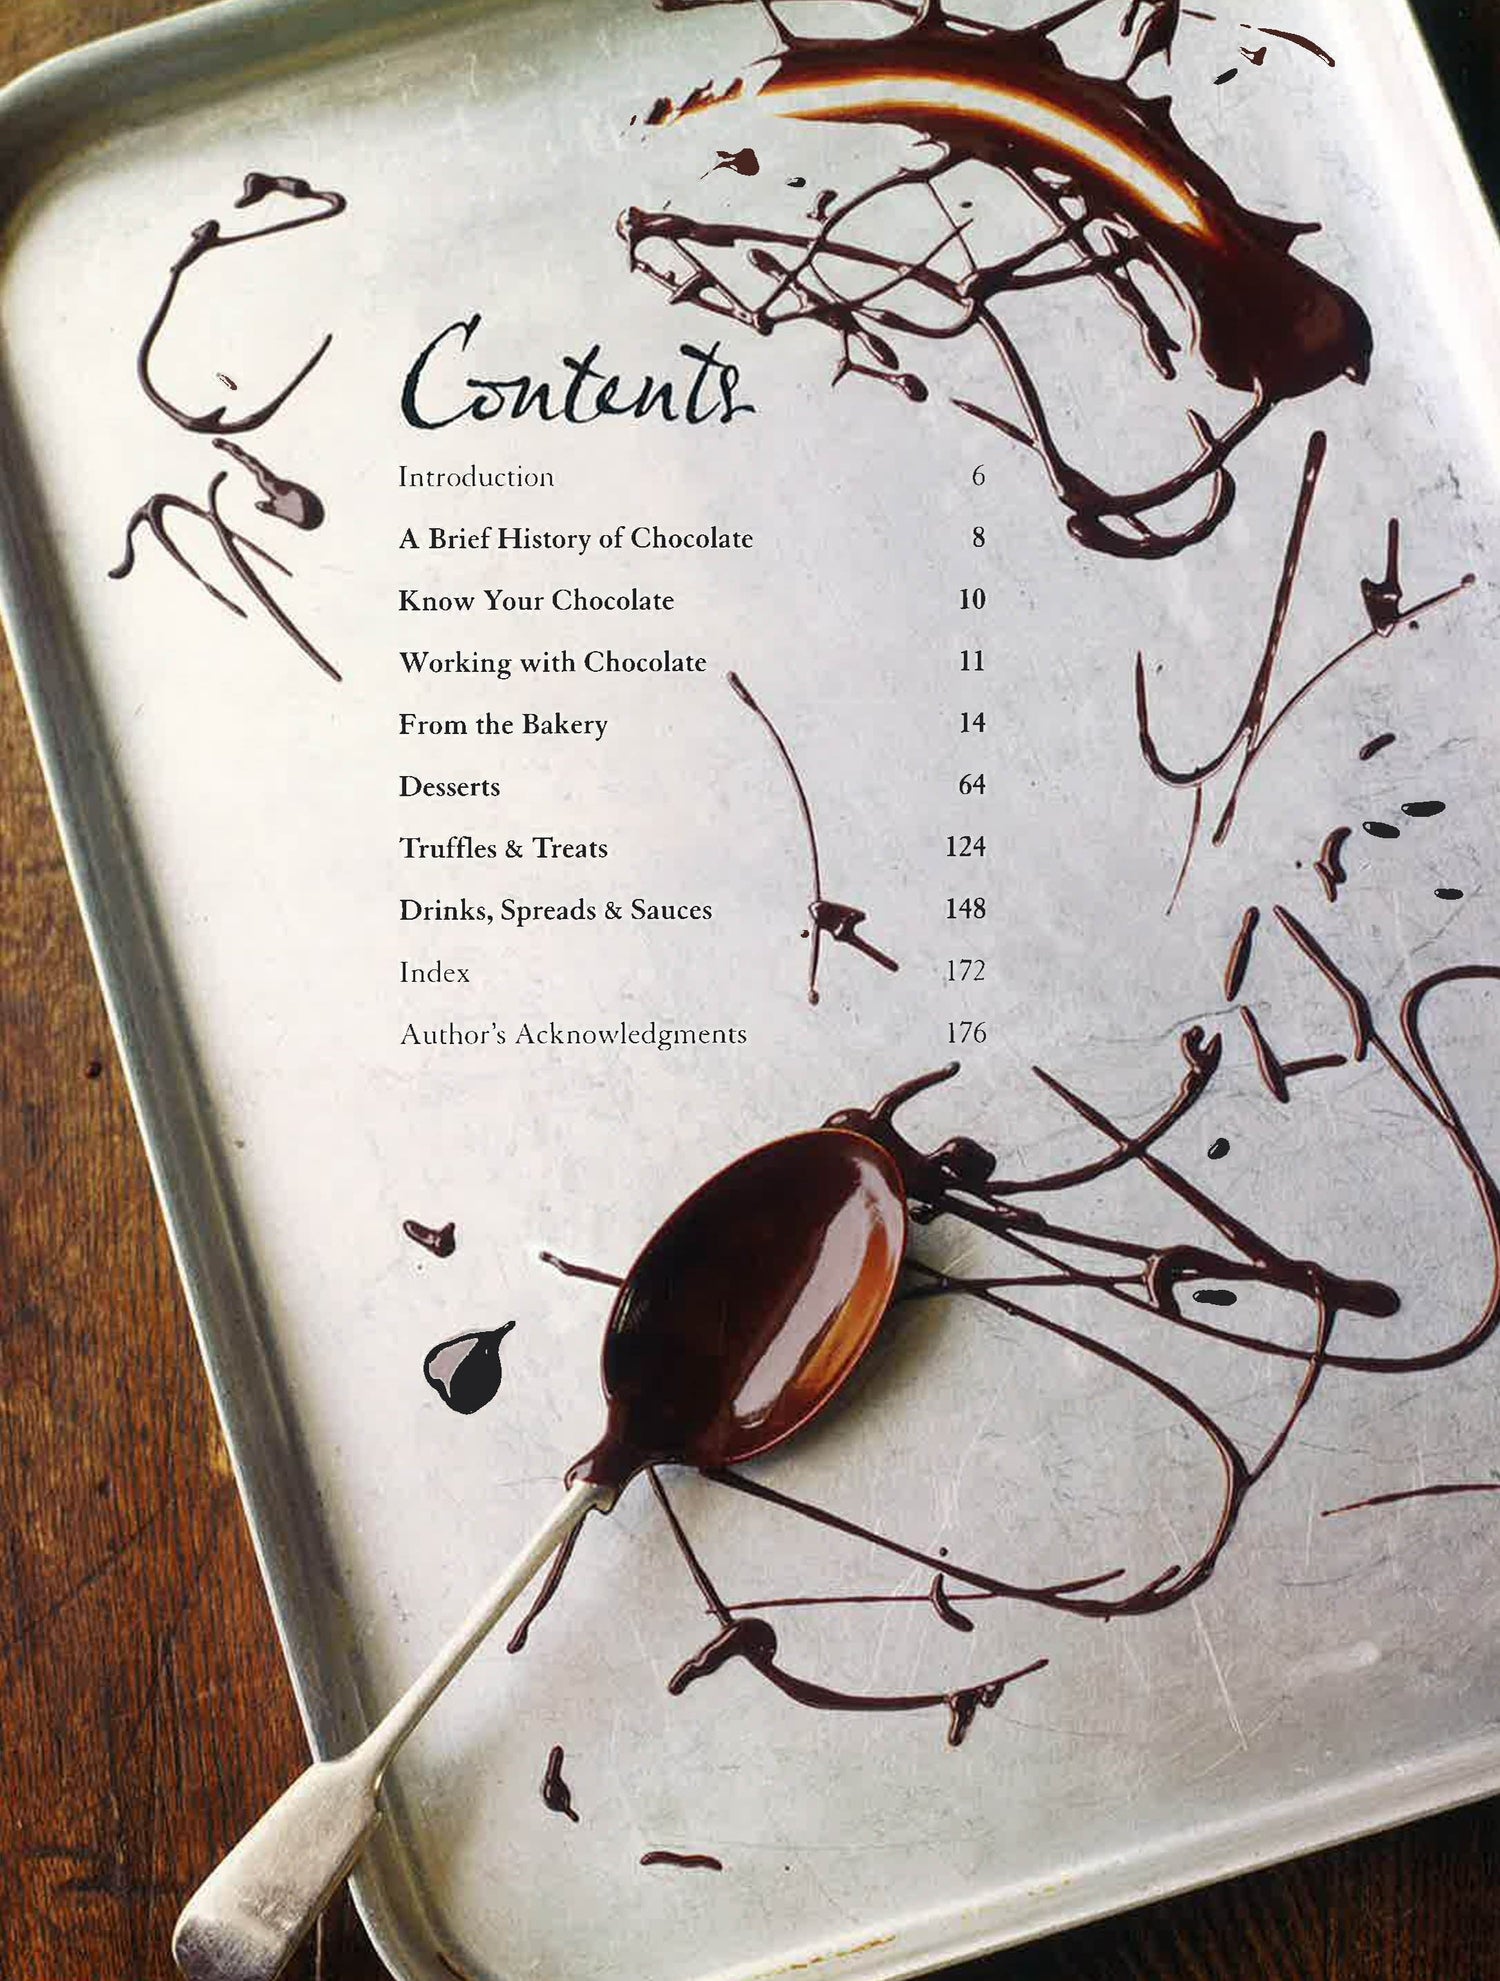 Contents
Introduction 6
A Brief History of Chocolate 8
Know Your Chocolate 10
Working with Chocolate 11
From the Bakery 14
Desserts 64
Truffles & Treats 124
Drinks, Spreads & Sauces 148
Index 172
Author's Acknowledgments 176